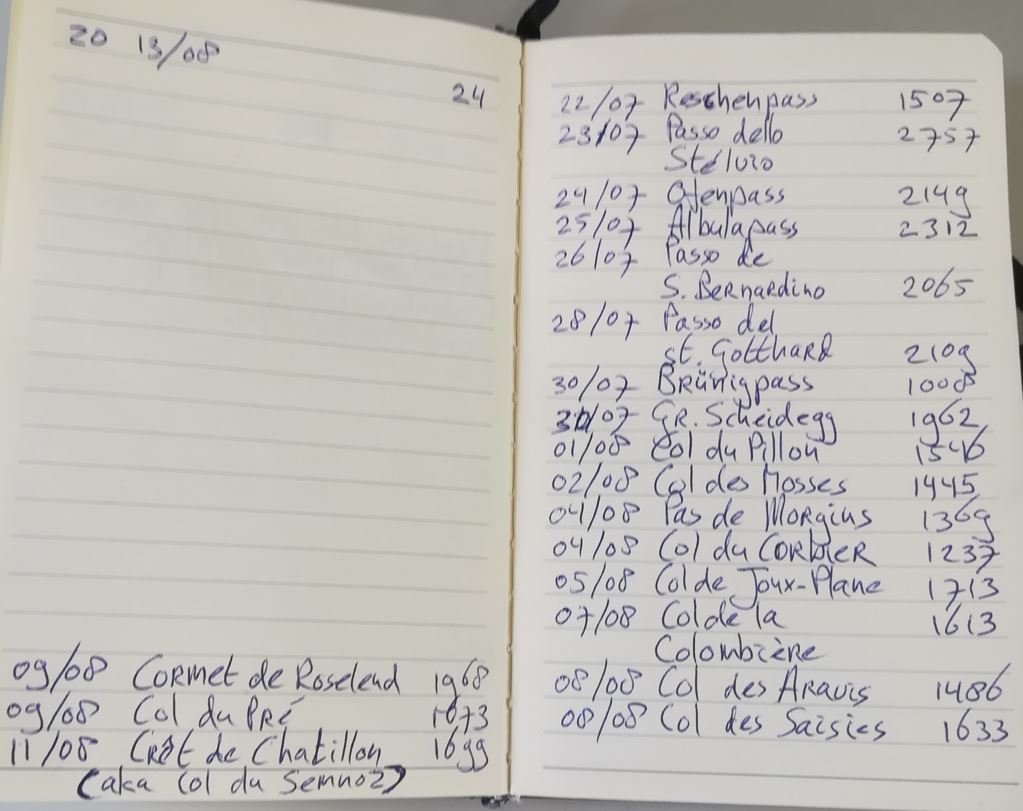 20 13/08
24
09/08 Cormet de Roselend 1968
09/08 Col du Pré 1673
11/08 Crêt de Chatillon 1699
(aka Col du Semnoz)
22/07 Reschenpass 1507
23/07 Passo dello 2757
Stélvio
24/07 Ofenpass 2149
25/07 Albulapass 2312
26/07 Passo de
S. Bernardino 2065
28/07 Passo del
st. Gotthard 2109
30/07 Brünigpass 1008
31/07 Gr. Scheidegg 1962
01/08 Col du Pillon 1546
02/08 Col des Mosses 1445
04/08 Pas de Morgins 1369
04/08 Col du Corbier 1237
05/08 Col de Joux-Plane 1713
07/08 Col de la 1613
Colombière
08/08 Col des Aravis 1486
08/08 Col des Saisies 1633